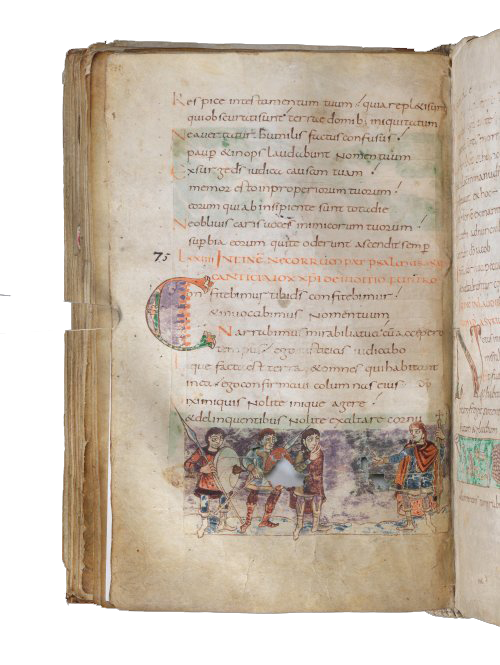 Respice intestamentum tuum quia repl&isunt
quiobscuratisunt terrae domib; iniquitatum
Neavertatur humilis factus confusus
paup & inops laudabunt Nomentuum
Exsurge ds iudica causam tuam
memor esto inproperiorum tuorum
eorum quiab insipiente sunt totadie
Neobliviscaris voces inimicorum tuorum
supbia eorum quite oderunt ascendit semp
75 Lxxiiii IN FINE NE CORRUMPAR PSALM
CANTICI VOX XPI
Confitebimur tibi ds confitebimur
&invocabimus Nomentuum
Narrabimus mirabiliatua cu accepero
tempus ego iustitias iudicabo
Lique facta est terra &omnes quihabitant
inea ego confirmavi columnas eius
Dixi iniquis Nolite inique agere
&delinquentibus Nolite exaltare cornu